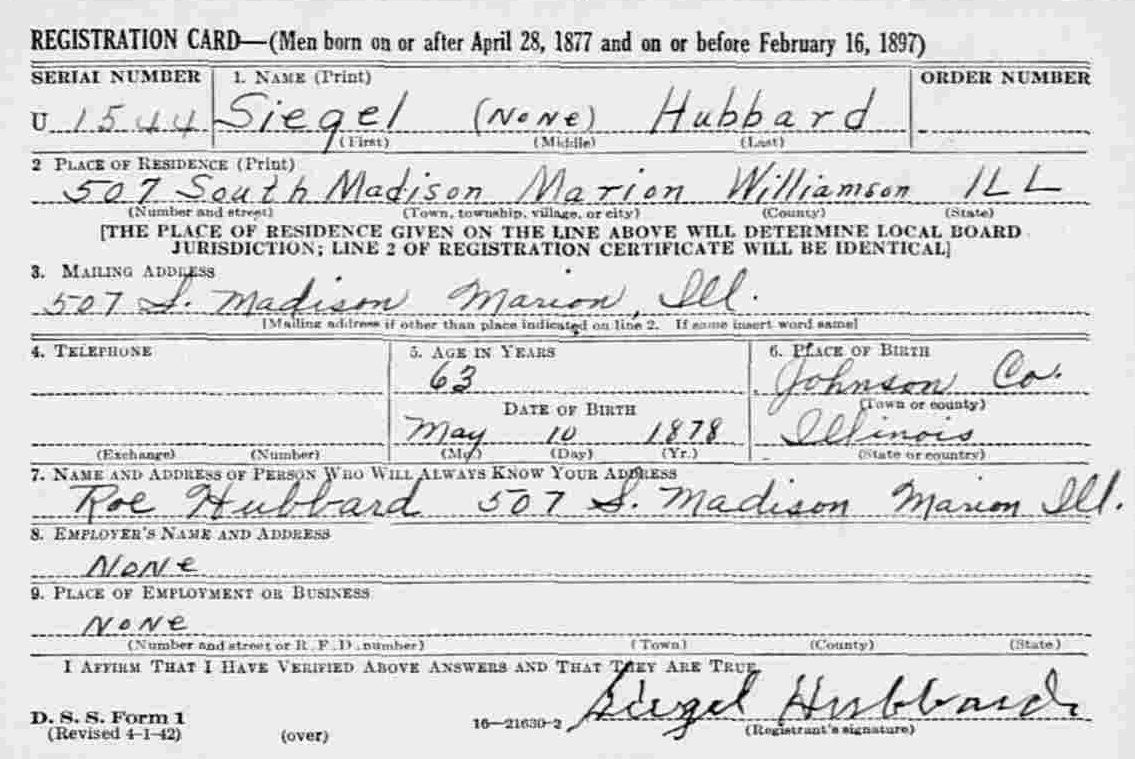 REGISTRATION CARD—(Men born on or after April 28, 1877 and on or before February 16, 1897)
SERIAL NUMBER 1. NAME (Print) ORDER NUMBER
U 1544 Siegel (NONE) Hubbard
(First) (Middle) (Last)
2 PLACE OF RESIDENCE (Print)
507 South Madison Marion Williamson ILL
(Number and street) (Town, township, village, or city) (County) (State)
[THE PLACE OF RESIDENCE GIVEN ON THE LINE ABOVE WILL DETERMINE LOCAL BOARD
JURISDICTION; LINE 2 OF REGISTRATION CERTIFICATE WILL BE IDENTICAL]
3. MAILING ADDRESS
507 S. Madison Marion, Ill.
[Mailing address if other than place indicated on line 2. If same insert word same]
4. TELEPHONE 5. AGE IN YEARS 6. PLACE OF BIRTH
63 Johnson Co.
DATE OF BIRTH (Town or county)
May 10 1878 Illinois
(Exchange) (Number) (Mo.) (Day) (Yr.) (State or country)
7. NAME AND ADDRESS OF PERSON WHO WILL ALWAYS KNOW YOUR ADDRESS
Roe Hubbard 507 S. Madison Marion Ill.
8. EMPLOYER'S NAME AND ADDRESS
NONE
9. PLACE OF EMPLOYMENT OR BUSINESS
NONE
(Number and street or R. F. D. number) (Town) (County) (State)
I AFFIRM THAT I HAVE VERIFIED ABOVE ANSWERS AND THAT THEY ARE TRUE.
Siegel Hubbard
D. S. S. Form 1
(Revised 4-1-42) (over) 16—21630-2 (Registrant's signature)